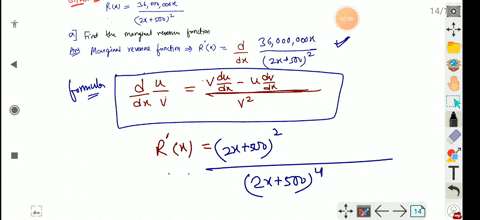 R(x) = 36,000,000x / (2x+500)²
a] Find the marginal revenue function
Marginal revenue function ⇒ R'(x) = d/dx 36,000,000x / (2x+500)²
formula
d/dx u/v = (v du/dx - u dv/dx) / v²
R'(x) = (2x+500)² / (2x+500)⁴
14
14